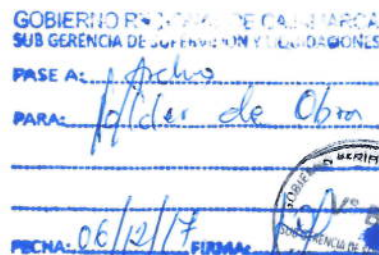 GOBIERNO REGIONAL DE CAJAMARCA
SUB GERENCIA DE SUPERVISION Y LIQUIDACIONES
PASE A: Archivo
PARA: folder de Obra
FECHA: 06/12/17 FIRMA:
GOBIERNO
Vº B
SUB GERENCIA DE